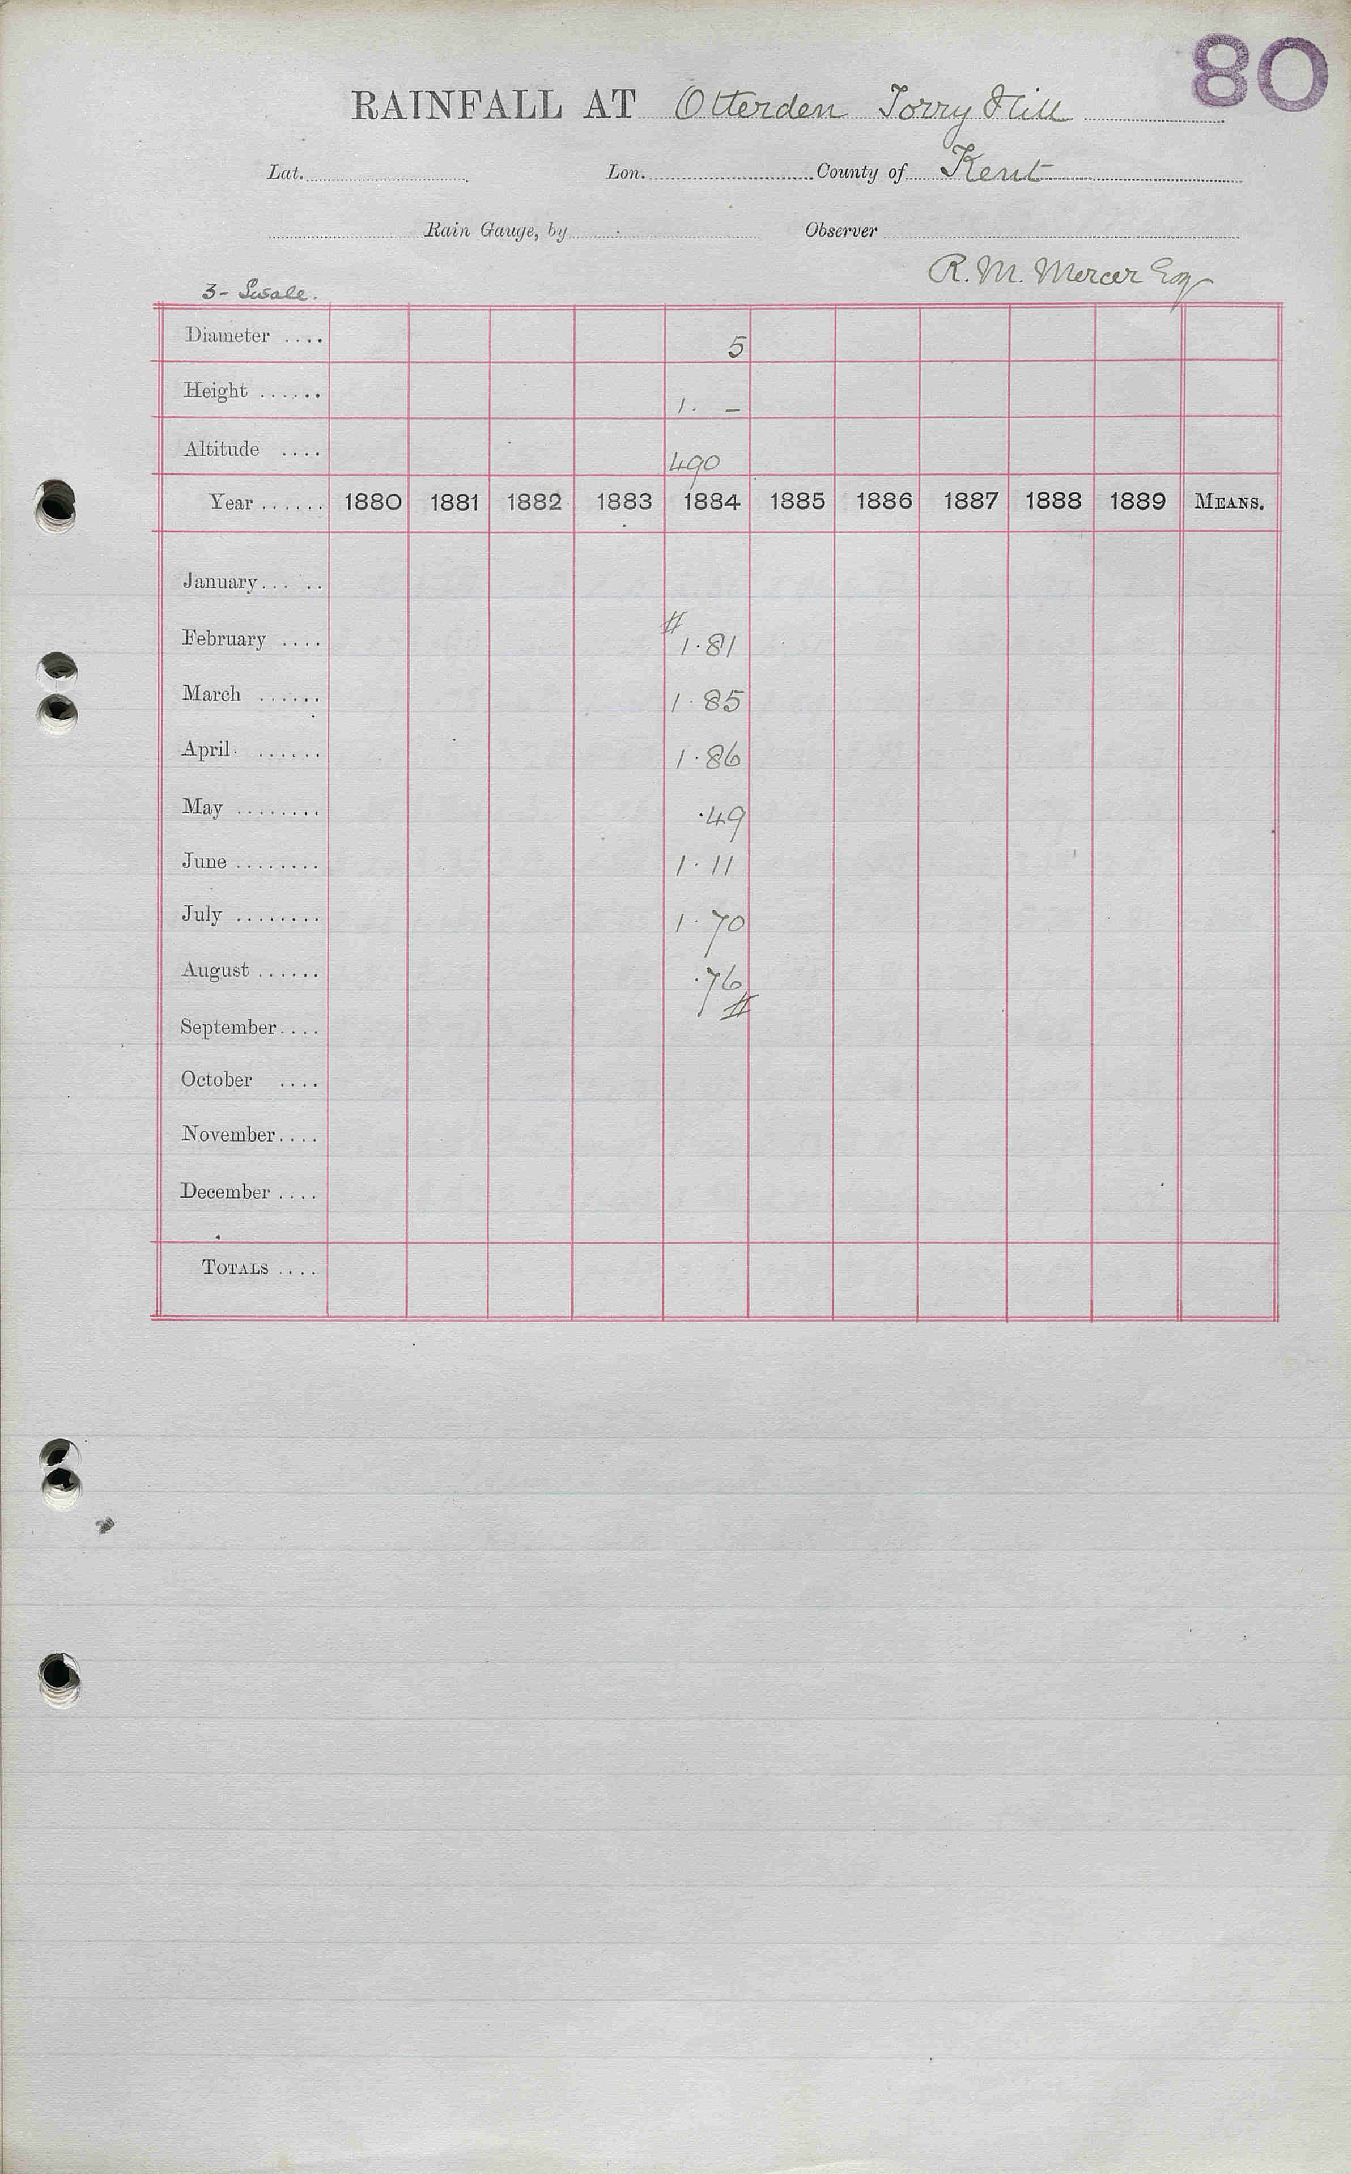 80
RAINFALL AT Otterden Torry Hill
Lat. Lon. County of Kent
Rain Gauge, by Observer
R. M. Mercer Esq
3 - Swale.
Diameter .... 5
Height ...... 1. –
Altitude .... 490
Year ...... 1880 1881 1882 1883 1884 1885 1886 1887 1888 1889 MEANS.
January.... ..
February .... # 1.81
March ...... 1.85
April ...... 1.86
May ........ .49
June ........ 1.11
July ........ 1.70
August ...... .76 #
September....
October ....
November....
December ....
TOTALS ....